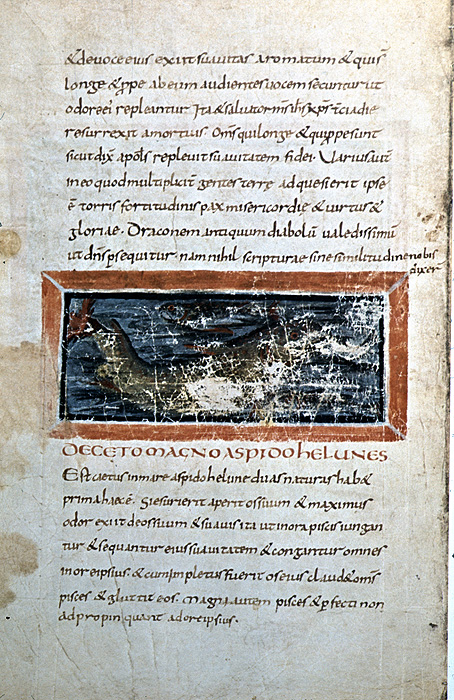 & de voce eius exiit suavitas aromatum & quis
longe & ppe ab eum audientes vocem secuntur ut
odore ei repleantur. Ita & salvator nr ihs xps tcia die
resurrexit a mortuis. Oms qui longe & qui ppe sunt
sicut dix apols replevit suavitatem fidei. Varius aut
in eo quod multiplicit gentes terre adquesierit ipse
e torris fortitudinis pax misericordie & virtus &
gloriae. Draconem antiquum diabolu valedissimu
ut dns psequitur. nam nihil scripturae sine similitudine nobis
dixer
DE CETO MAGNO ASPIDOHELUNES
Est caetus in mare aspidohelune duas naturas hab&
prima haec e. Si esurierit aperit os suum & maximus
odor exiit de os suum & suavis ita ut in ora piscis iungan
tur & sequantur eius suavitatem & congantur omnes
in ore ipsius. & cum impletus fuerit os eius claud& oms
pisces & gluttit eos. Magni autem pisces & pfecti non
adpropinquant ad ore ipsius.